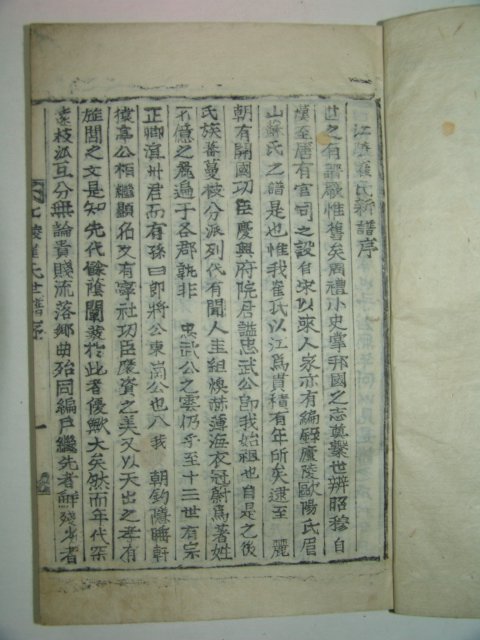 江陵崔氏新譜序
世之有譜厥惟舊矣周禮小史掌邦國之志奠繫世辨昭穆自
漢至唐有官司之設自宋以來人家亦有編譜廬陵歐陽氏眉
山蘇氏之譜是也惟我崔氏以江爲貫積有年所矣逮至 麗
朝有開國功臣慶興府院君謚忠武公卽我始祖也自是之後
氏族蕃蔓枝分派列代有聞人圭組煥赫薄海衣冠蔚爲著姓
不億之麗遍于各郡孰非 忠武公之雲仍乎至十三世有宗
正卿 州君而有孫曰郞將公東崗公也入我 朝 隱睡軒
亭公相繼顯名又有寧社功臣慶資之美又以天出之孝有
旌閭之文是知先代餘陰闡發於此者優歟大矣然而年代
遠枝派互分無論貴賤流落鄕曲殆同編戶繼先者鮮殘劣者
江陵崔氏世譜序
一